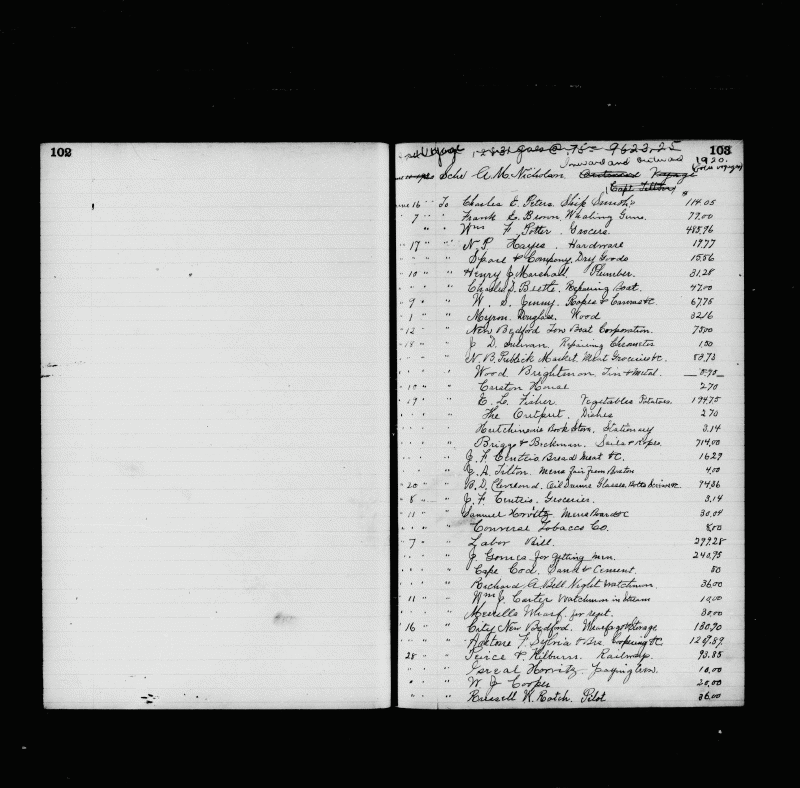 102
103
Voyage 12831 gals @ .75 = 9623.25
Inward and outward 1920.
Schr A M Nicholson Outward Voyage
(Capt Tilton)
June 16 To Charles E. Peters. Ship Smith 114.05
7 " " Frank E. Brown. Whaling Guns. 77.00
" " " Wm F. Potter. Grocers. 485.96
17 " " N. P. Hayes. Hardware 19.77
" " " Spare & Company. Dry Goods 15.56
10 " " Henry J. Marshall Plumber. 31.28
" " " Charles D. Beetle. Repairing Boat. 47.00
9 " " W. S. Jenny. Ropes & Canvas &c. 67.75
1 " " Myron Douglass. Wood 32.16
12 " " New Bedford Tow Boat Corporation. 75.00
" " J. D. Sullivan. Repairing 1.00
" " " N. B. Market. Meat Groceries &c. 53.73
" " " Wood Brightman. Tin & Metal.
" " Custom House 2.70
19 " " E. L. Fisher. Vegetables Potatoes. 194.75
" " " The Output. Dishes 2.70
" " " Hutchinson's Book Store. Stationary 3.14
" " " Briggs & Beckman. Sails & Ropes. 714.00
" " " J. F. Bread Meat &c. 16.29
" " " J. A. Tilton. Mens fair from Boston 4.00
20 " " B. D. Cleveland. Oil Glasses
8 " " J. F. Groceries. 3.14
11 " " Samuel Horvitz Mens Board &c 30.04
" " " Converse Tobacco Co. 8.00
7 " " Labor Bill. 299.28
" " " J. Gomes for getting men. 240.95
" " " Cape Cod. Sand & Cement. 80
" " " Richard A. Bell. Night Watchman. 36.00
11 " " Wm J. Carter Watchman in Stream 10.00
" " " Merrills Wharf. for rent. 30.00
16 " " City New Bedford. Wharfage & Storage 130.90
" " " Antone F. Sylvia & Bro Coopering &c. 1269.59
28 " " Peirce & Kilburn. Railways. 93.85
" " Horvitz 10.00
" " W. J. Cooper 20.00
" " " Russell W. Rotch. Pilot 36.00